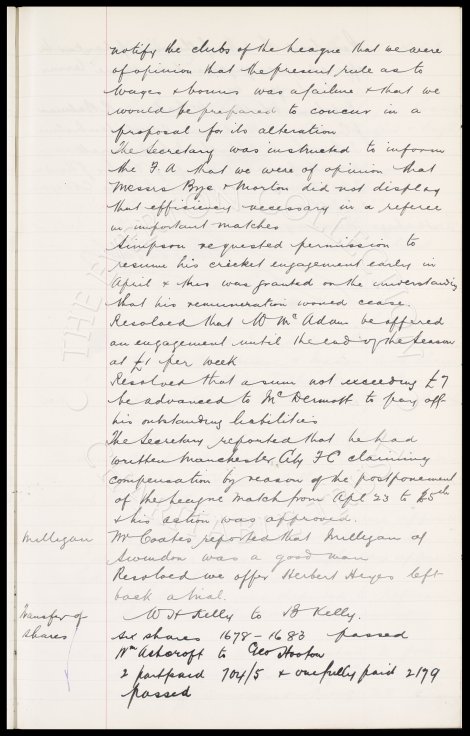 notify the clubs of the league that we were
of opinion that the present rule as to
wages & bonus was a failure & that we
would be prepared to concur in a
proposal for its alteration
The Secretary was instructed to inform
the F.A that we were of opinion that
Messrs Bye & Morton did not display
that efficiency necessary in a referee
in important matches
Simpson requested permission to
resume his cricket engagement early in
April & this was granted on the understanding
that his remuneration would cease.
Resolved that W McAdam be offered
an engagement until the end of the Season
at £1 per week
Resolved that a sum not exceeding £7
be advanced to McDermott to pay off
his outstanding liabilities
The Secretary reported that he had
written Manchester City FC claiming
compensation by reason of the postponement
of the League match from Apl 23 to 25th
& his action was approved.
Milligan Mr Coates reported that Milligan of
Swindon was a good man
Resolved we offer Herbert Hayes left
back a trial.
Transfer of W H Kelly to B Kelly.
Shares six shares 1678-1683 passed
Wm Ashcroft to Geo Hooton
2 part paid 704/5 & one fully paid 2179
passed